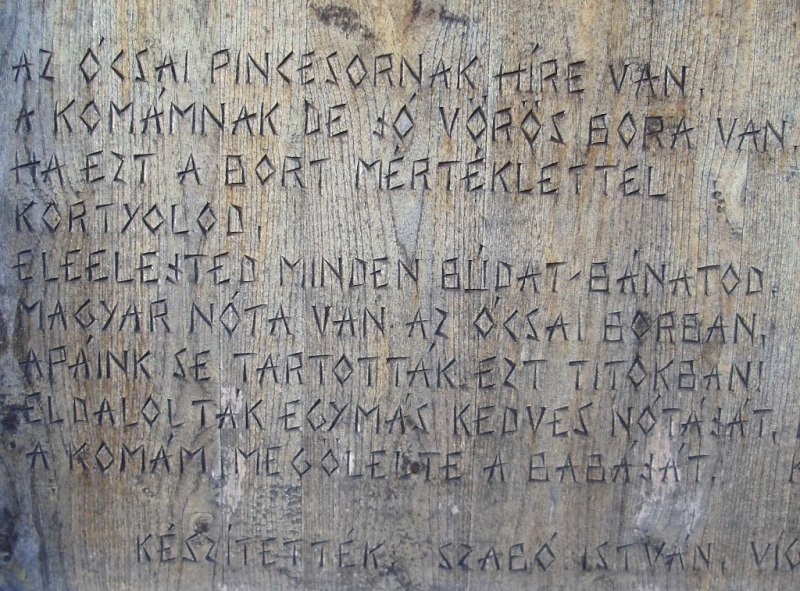 AZ ÓCSAI PINCESORNAK HÍRE VAN,
A KOMÁMNAK DE JÓ VÖRÖS BORA VAN,
HA EZT A BORT MÉRTÉKLETTEL
KORTYOLOD,
ELEELEJTED MINDEN BÚDAT-BÁNATOD,
MAGYAR NÓTA VAN AZ ÓCSAI BORBAN,
APÁINK SE TARTOTTÁK EZT TITOKBAN!
ELDALOLTÁK EGYMÁS KEDVES NÓTÁJÁT,
A KOMÁM MEGÖLELTE A BABÁJÁT.
KÉSZÍTETTÉK, SZABÓ ISTVÁN,